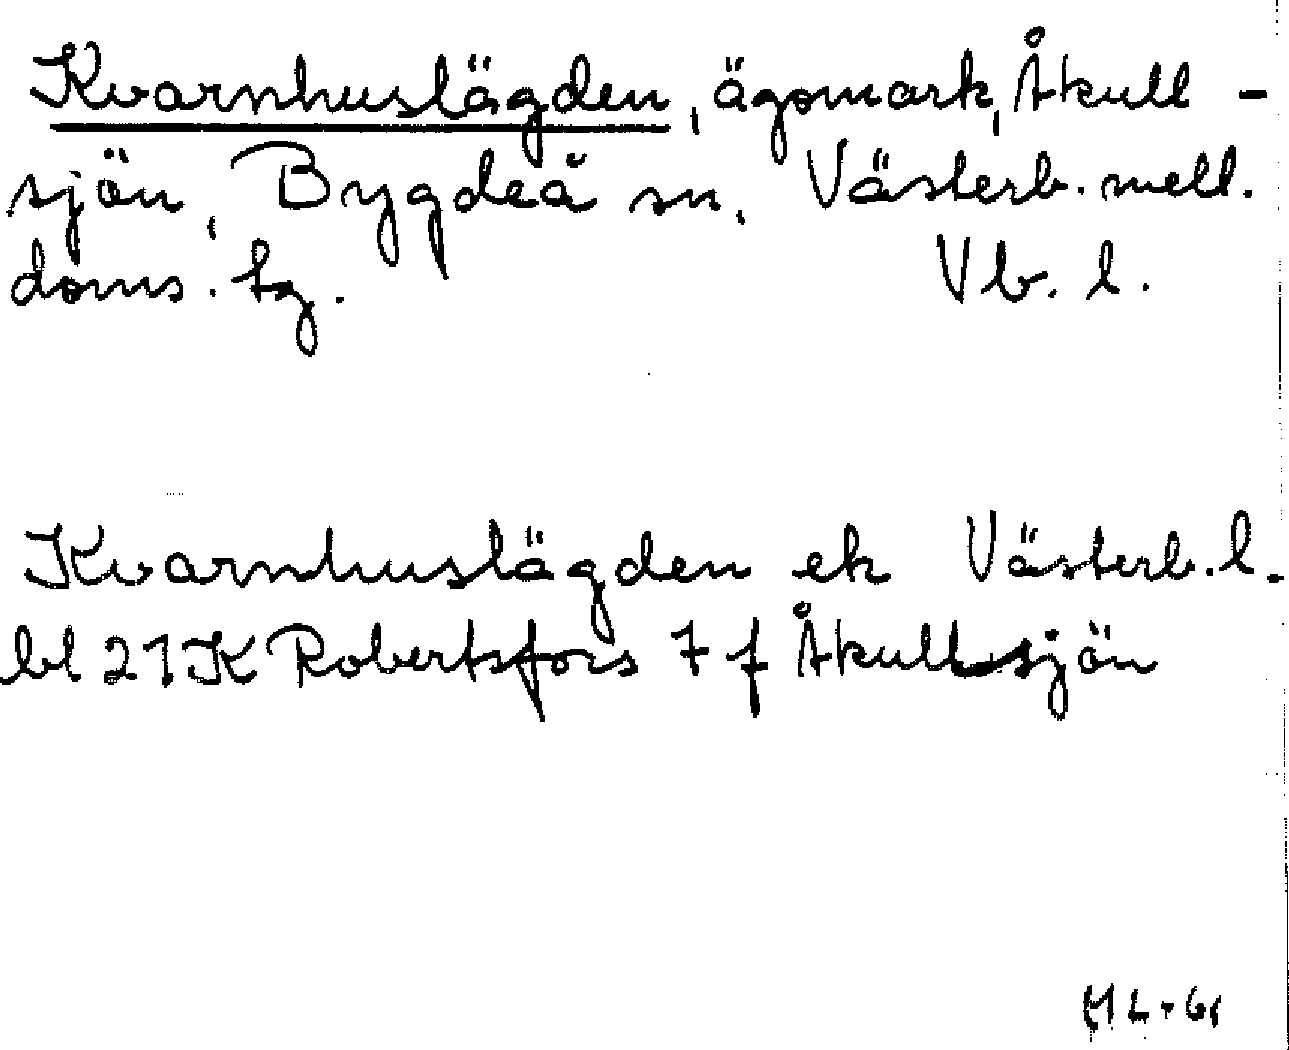 Kvarnhuslägden, ägomark, Åkull-
sjön, Bygdeå sn, Västerb. mell.
doms. tg. Vb. l.
Kvarnhuslägden ek Västerb. l.
bl 21K Robertsfors 7 f Åkullsjön